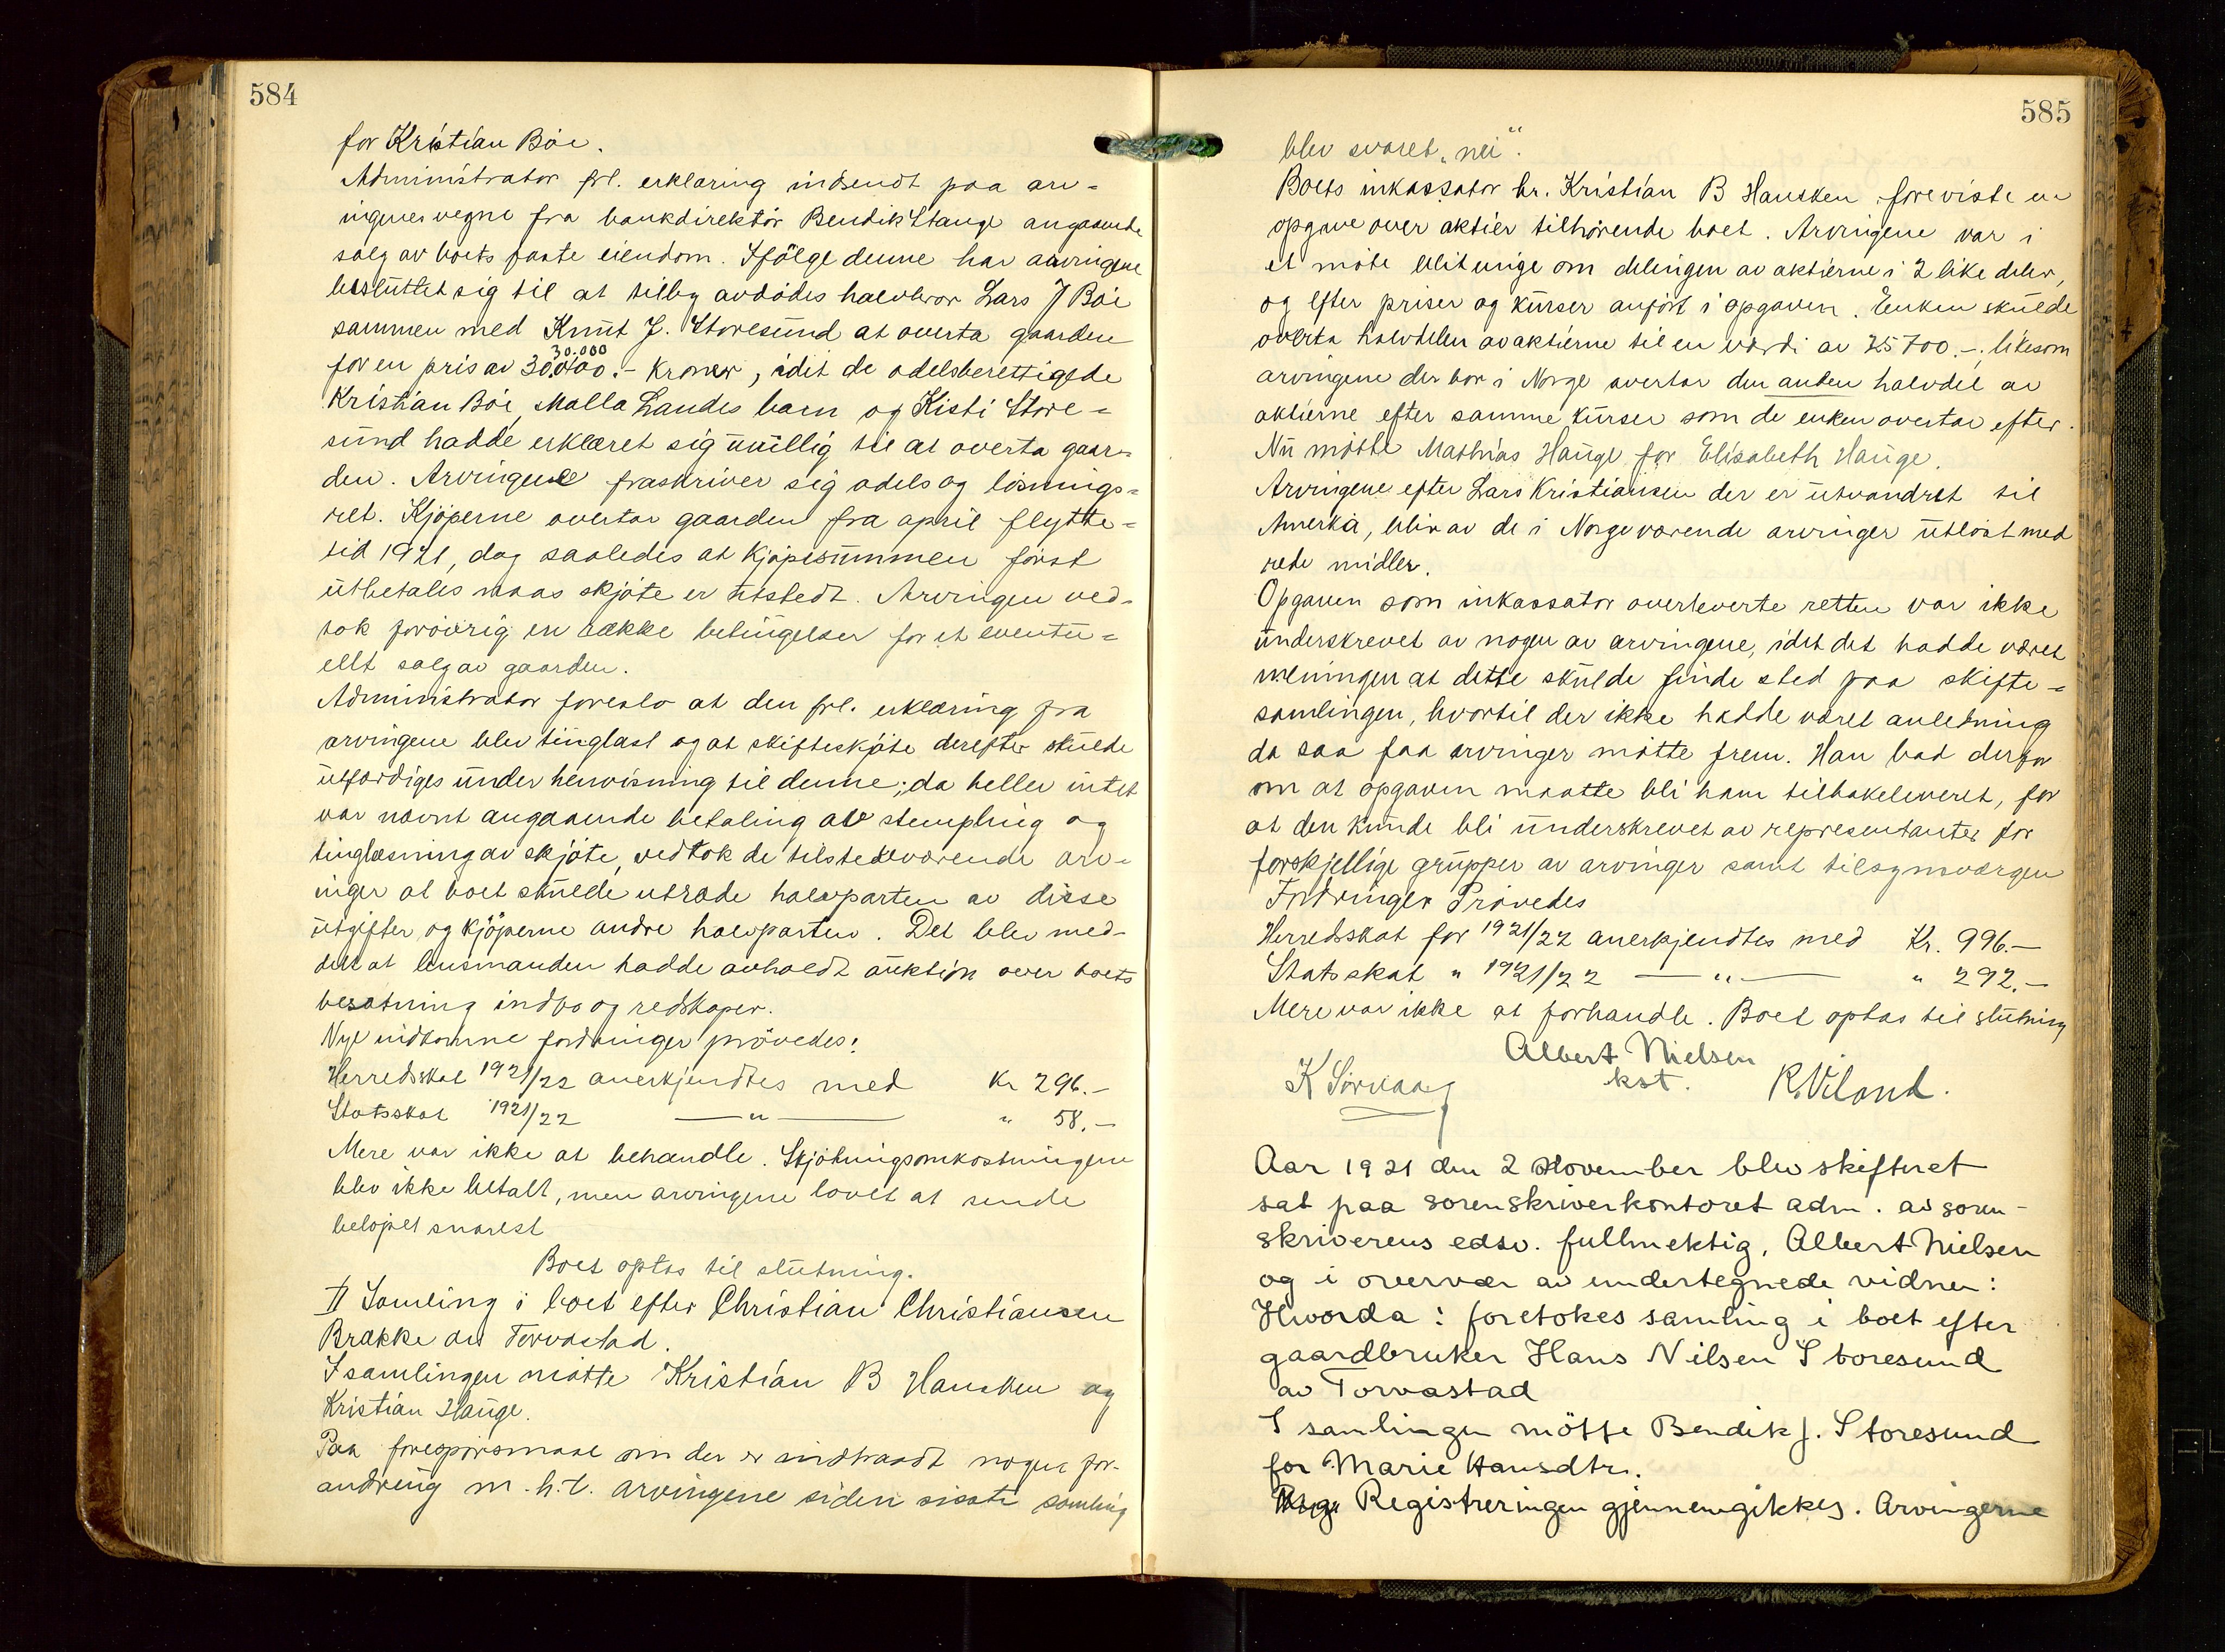 584
for Kristian Böe.
Administrator frl. erklæring indsendt paa arv-
ingenes vegne fra bankdirektör Bendik Stange angaaende
salg av boets faste eiendom. Ifölge denne har arvingene
besluttet sig til at tilby avdödes halvbror Lars J Böe
sammen med Knut J. Storesund at overta gaarden
30.000
for en pris av 30.000.- kroner, idet de odelsberettigede
Kristian Böe, Malla Landes barn og Kisti Store=
sund hadde erklæret sig uvillig til at overta gaar=
den. Arvingene fraskriver sig odels og lösnings=
ret. Kjöperne overtar gaarden fra april flytte=
tid 1921, dog saaledes at kjöpesummen först
utbetales naar skjöte er utstedt. Arvingen ved-
tok forövrig en række betingelser for et eventu=
ellt salg av gaarden.
Administrator foreslo at den frl. erklæring fra
arvingene blev tinglæst og at skifteskjöte derefter skulde
utfærdiges under henvisning til denne; da heller intet
var nævnt angaaende betaling av stempling og
tinglæsning av skjöte, vedtok de tilstedeværende arv-
inger at boet skulde utrede halvparten av disse
utgifter og kjöperne andre halvparten. Det blev med-
delt at lensmanden hadde avholdt auktion over boets
besætning indbo og redskaper.
Nye indkomne fordringer prövedes:
Herredsskat 1921/22 anerkjendtes med Kr 296.-
Statsskat 1921/22 — " — " 58.-
Mere var ikke at behandle. Skjötningsomkostningene
blev ikke betalt, men arvingene lovet at sende
belöpet snarest
Boet optas til slutning.
II Samling i boet efter Christian Christiansen
Brække av Torvastad.
I samlingen mötte Kristian B Hausken og
Kristian Hauge.
Paa forespörsmaal om der er indtraadt nogen for-
andring m.h.t. arvingene siden sisste samling
585
blev svaret „nei“.
Boets inkassator hr. Kristian B Hausken foreviste en
opgave over aktier tilhörende boet. Arvingene var i
et möte blit enige om delingen av aktierne i 2 like deler,
og efter priser og kurser anfört i opgaven. Enken skulde
overta halvdelen av aktierne til en værdi av 25700.-. likesom
arvingene der bor i Norge overtar den anden halvdel av
aktierne efter samme kurser som de enken overtar efter.
Nu mötte Mathias Hauge for Elisabeth Hauge.
Arvingene efter Lars Kristiansen der er utvandret til
Amerika, blir av de i Norge værende arvinger utlöst med
rede midler.
Opgaven som inkassator overleverte retten var ikke
underskrevet av nogen av arvingene, idet det hadde været
meningen at dette skulde finde sted paa skifte=
samlingen, hvortil der ikke hadde været anledning
da saa faa arvinger mötte frem. Han bad derfor
om at opgaven maatte bli ham tilbakeleveret, for
at den kunde bli underskrevet av representanter for
forskjellige grupper av arvinger samt tilsynsværgen
Fordringer Prövedes
Herredsskat for 1921/22 anerkjendtes med Kr. 996.-
Statsskat " 1921/22 — " — " 292.-
Mere var ikke at forhandle. Boet optas til slutning
Albert Nielsen
kst.
K Sörvaag R. Viland.
Aar 1921 den 2 November blev skifteret
sat paa sorenskriverkontoret adm. av soren-
skriverens edsv. fullmektig, Albert Nielsen
og i overvær av undertegnede vidner:
Hvorda: foretokes samling i boet efter
gaardbruker Hans Nilsen Storesund
av Torvastad
I samlingen mötte Bendik J. Storesund
for Marie Hansdtr.
Registreringen gjennemgikkes. Arvingerne